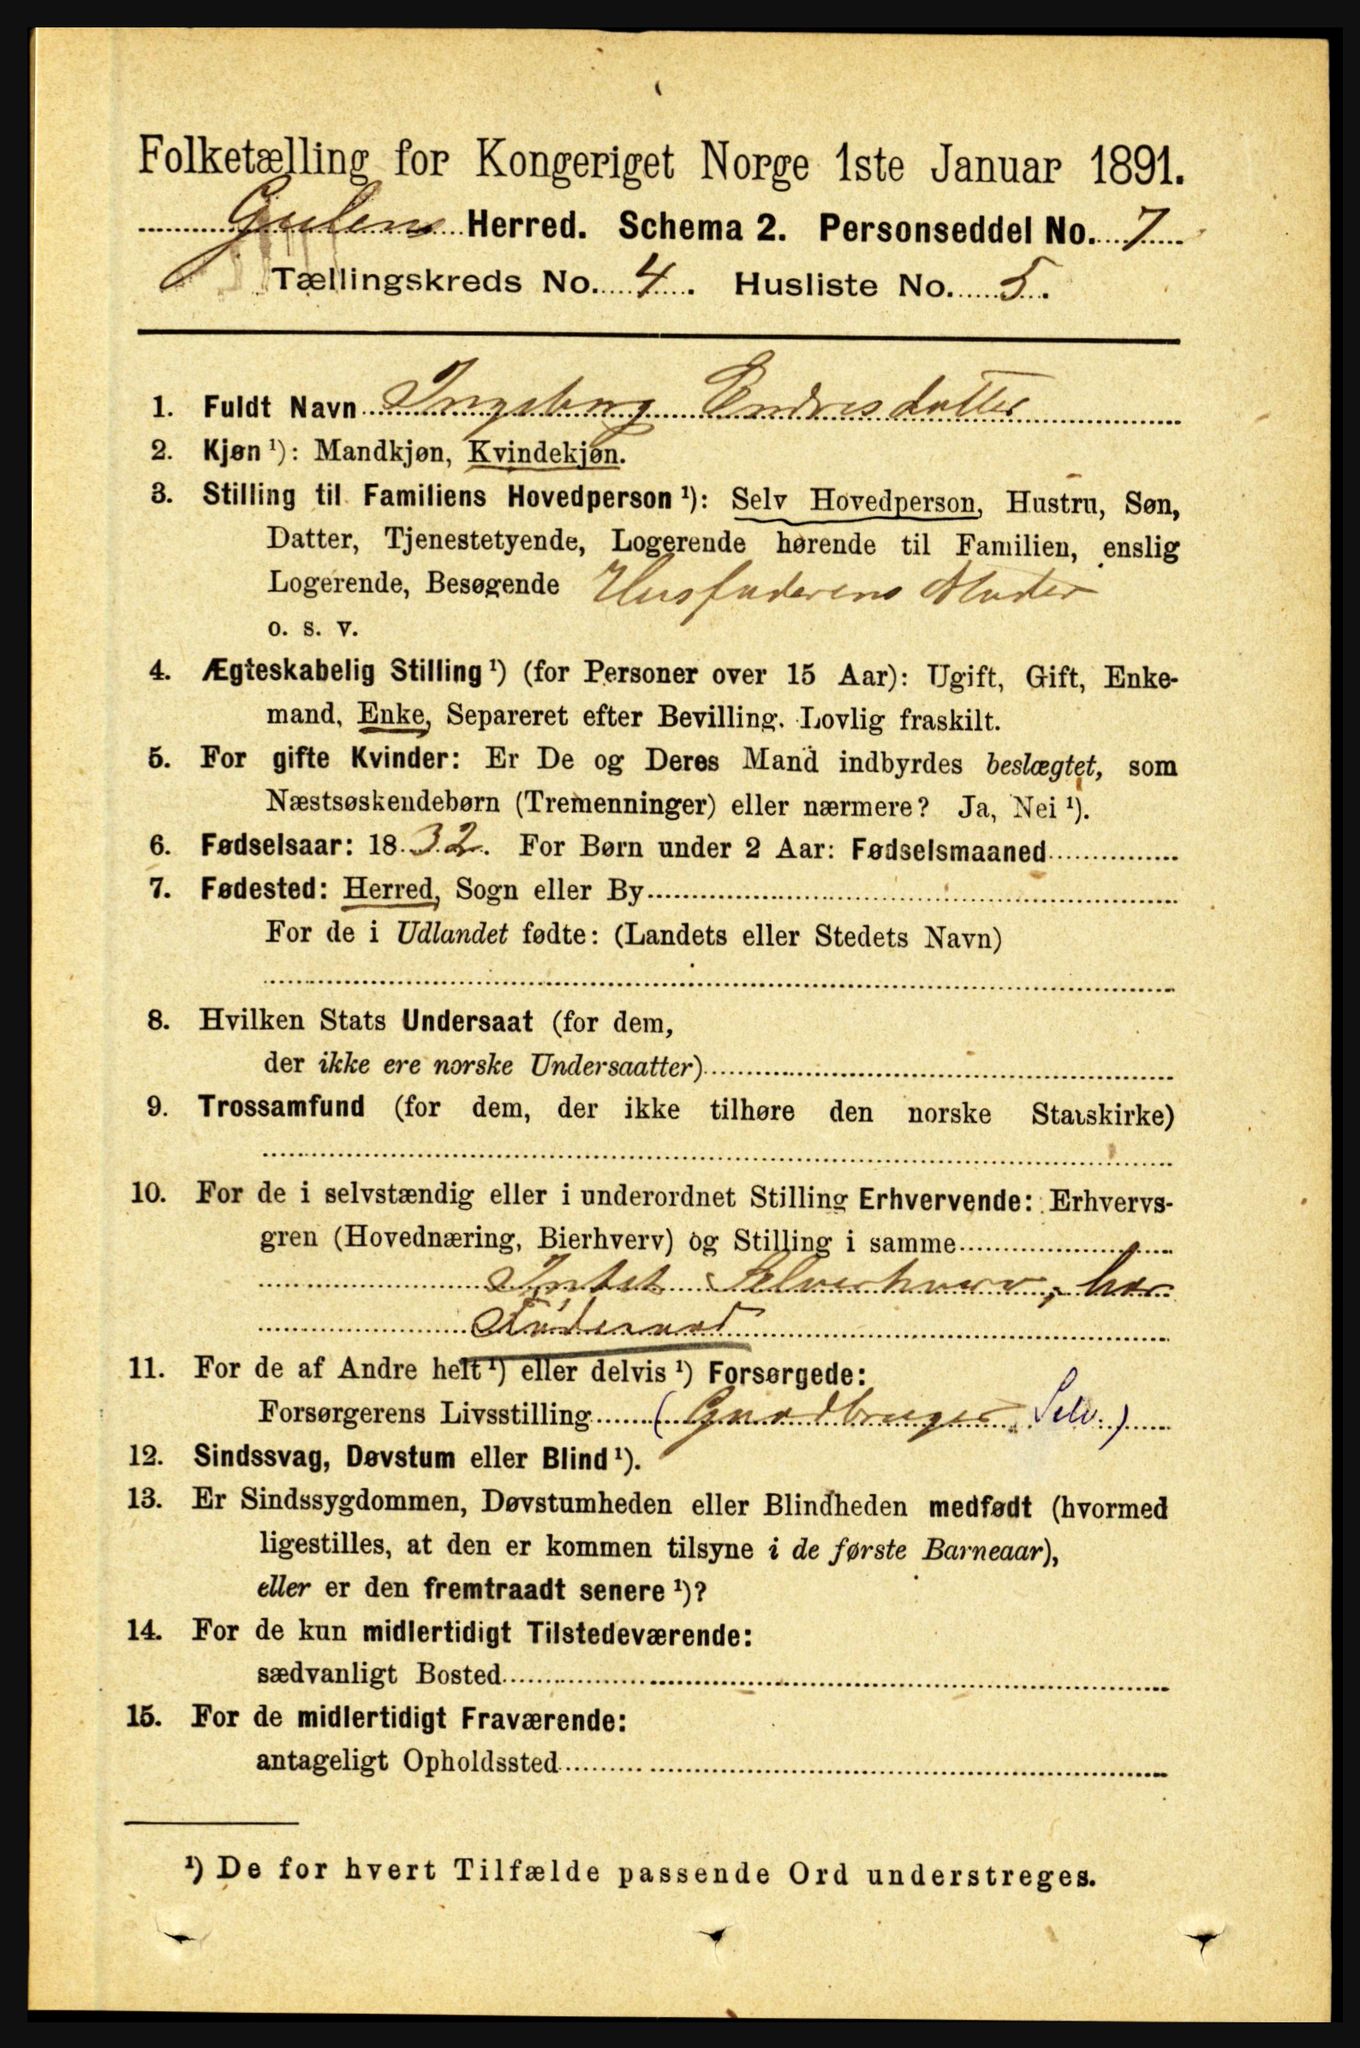 Folketælling for Kongeriget Norge 1ste Januar 1891.
Gulens Herred. Schema 2. Personseddel No. 7
Tællingskreds No. 4. Husliste No. 5.
1. Fuldt Navn Ingeborg Endresdatter
2. Kjøn ¹): Mandkjøn, Kvindekjøn.
3. Stilling til Familiens Hovedperson ¹): Selv Hovedperson, Hustru, Søn,
Datter, Tjenestetyende, Logerende hørende til Familien, enslig
Logerende, Besøgende Husfaderens Moder
o. s. v.
4. Ægteskabelig Stilling ¹) (for Personer over 15 Aar): Ugift, Gift, Enke-
mand, Enke, Separeret efter Bevilling. Lovlig fraskilt.
5. For gifte Kvinder: Er De og Deres Mand indbyrdes beslægtet, som
Næstsøskendebørn (Tremenninger) eller nærmere? Ja, Nei ¹).
6. Fødselsaar: 1832. For Børn under 2 Aar: Fødselsmaaned
7. Fødested: Herred, Sogn eller By
For de i Udlandet fødte: (Landets eller Stedets Navn)
8. Hvilken Stats Undersaat (for dem,
der ikke ere norske Undersaatter)
9. Trossamfund (for dem, der ikke tilhøre den norske Statskirke)
10. For de i selvstændig eller i underordnet Stilling Erhvervende: Erhvervs-
gren (Hovednæring, Bierhverv) og Stilling i samme
Intet Selverhverv, har
Føderaad
11. For de af Andre helt ¹) eller delvis ¹) Forsørgede:
Forsørgerens Livsstilling (Gaardbruger Selv.)
12. Sindssvag, Døvstum eller Blind ¹).
13. Er Sindssygdommen, Døvstumheden eller Blindheden medfødt (hvormed
ligestilles, at den er kommen tilsyne i de første Barneaar),
eller er den fremtraadt senere ¹)?
14. For de kun midlertidigt Tilstedeværende:
sædvanligt Bosted
15. For de midlertidigt Fraværende:
antageligt Opholdssted
¹) De for hvert Tilfælde passende Ord understreges.